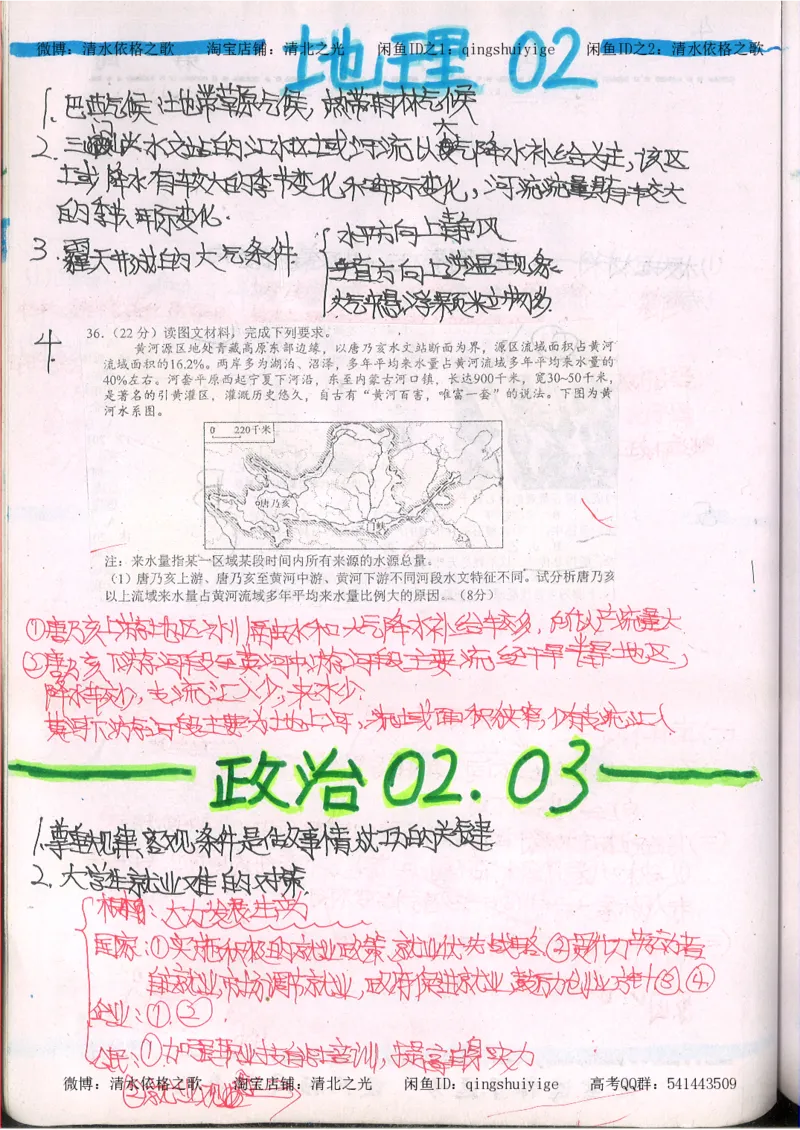 微博：清水依格之歌 淘宝店铺：清北之光 闲鱼ID之1：qingshuiyige 闲鱼ID之2：清水依格之歌
地理 02
1. 巴西气候：热带草原气候，热带雨林气候
2. 三 水文站的 流域 河流以大气降水补给为主，该区
域降水有较大的季节变化和年际变化，河流流量具有较大
的季节年际变化.
3. 霾天形成的大气条件
水平方向上静风
垂直方向上逆温现象
大气中悬浮颗粒物多.
4
36.（22分）读图文材料，完成下列要求。
黄河源区地处青藏高原东部边缘，以唐乃亥水文站断面为界，源区流域面积占黄河
流域面积的16.2%。两岸多为湖泊、沼泽，多年平均来水量占黄河流域多年平均来水量的
40%左右。河套平原西起宁夏下河沿，东至内蒙古河口镇，长达900千米，宽30~50千米，
是著名的引黄灌区，灌溉历史悠久，自古有“黄河百害，唯富一套”的说法。下图为黄
河水系图。
0 220千米
唐乃亥
门峡
注：来水量指某一区域某段时间内所有来源的水源总量。
（1）唐乃亥上游、唐乃亥至黄河中游、黄河下游不同河段水文特征不同。试分析唐乃亥
以上流域来水量占黄河流域多年平均来水量比例大的原因。（8分）
①唐乃亥上游地区冰川融水和大气降水补给较多，所以产流量大
②唐乃亥以下游河段至黄河中游河段主要流经干旱半旱地区，
降水较少，支流汇入少，来水少
黄河下游河段主要为地上河，流域面积狭窄，少有支流汇入
政治 02. 03
1.尊重规律、客观条件是做事情成功的关键
2. 大学生就业难的对策
根本：大力发展生产力
国家：①实施积极的就业政策，就业优先战略 ②贯彻劳动者
自主就业，市场调节就业，政府促进就业，鼓励创业方针 ③、④
企业：①、②
公民：①加强职业技能培训，提高自身实力
②就业观
微博：清水依格之歌 淘宝店铺：清北之光 闲鱼ID：qingshuiyige 高考QQ群：541443509